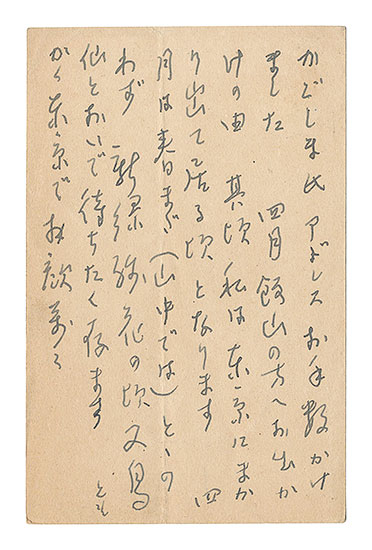 かごしま氏 アドレス お手数かけ
ました 四月飯山の方へお出か
けの由 其頃 私は東京にまか
り出て居る頃となります 四
月は春日まだ(山中では)とゝの
わず 新緑 花の頃 又鳥
仙とおいで待ちたく存ます
東京で拝顔萬々